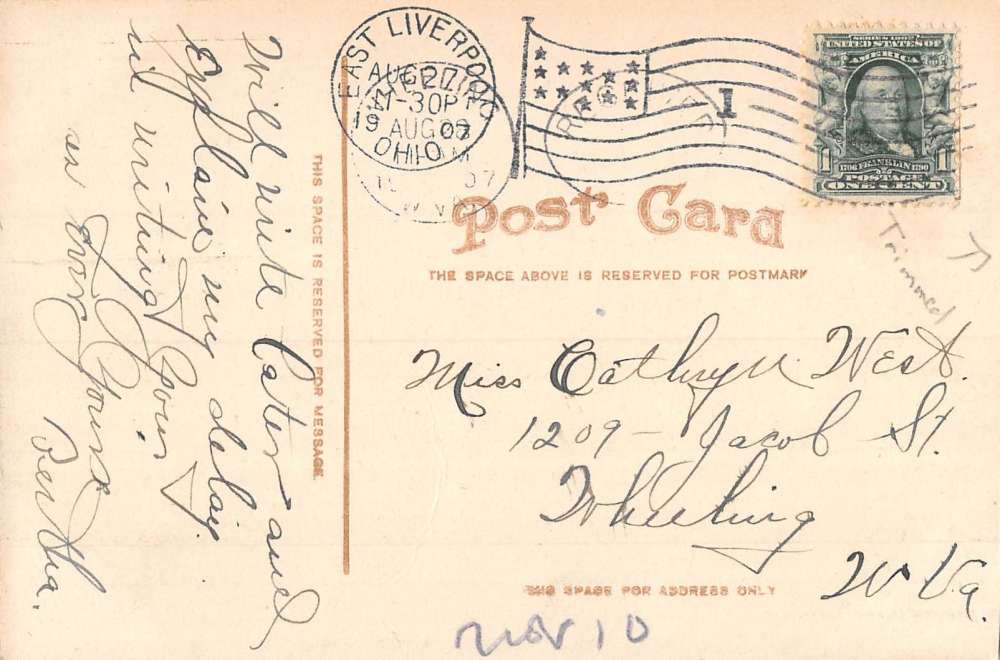 Will write later and
Explain my delay
in writing you.
as Ever Yours
Bertha.
THIS SPACE IS RESERVED FOR MESSAGE
EAST LIVERPOOL
AUG 27
11-30P
1907
OHIO
AUG
RECEIVED
1
SERIES 1902
UNITED STATES OF
AMERICA
1706 FRANKLIN 1790
POSTAGE
1 ONE CENT 1
Trimmed
Post Card
THE SPACE ABOVE IS RESERVED FOR POSTMARK
Miss Cathryn West.
1209 - Jacob St.
Wheeling
W Va.
THIS SPACE FOR ADDRESS ONLY
Nov 10